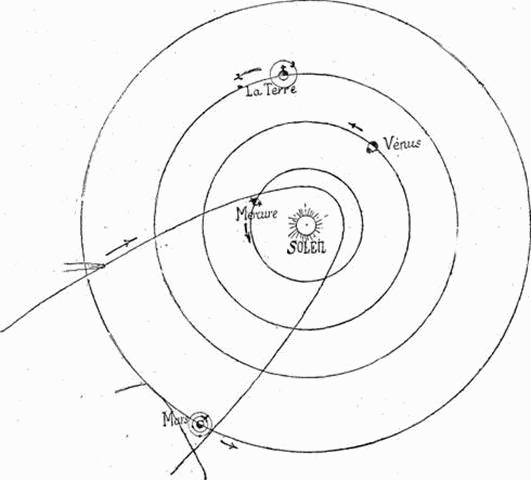 La Terre
Vénus
Mercure
SOLEIL
Mars